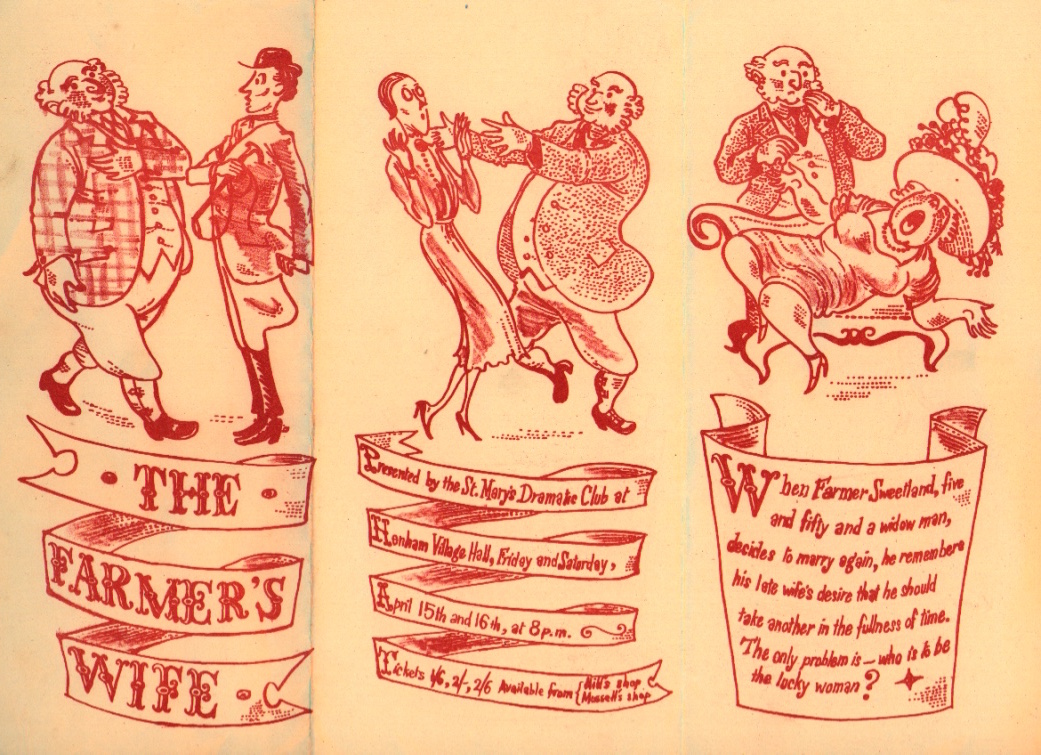 THE
FARMER'S
WIFE
Presented by the St. Mary's Dramatic Club at
Honham Village Hall, Friday and Saturday,
April 15th and 16th, at 8 p.m.
Tickets 1/6, 2/-, 2/6 Available from { Hill's shop
Mussett's shop
When Farmer Sweetland, five
and fifty and a widow man,
decides to marry again, he remembers
his late wife's desire that he should
take another in the fullness of time.
The only problem is — who is to be
the lucky woman?